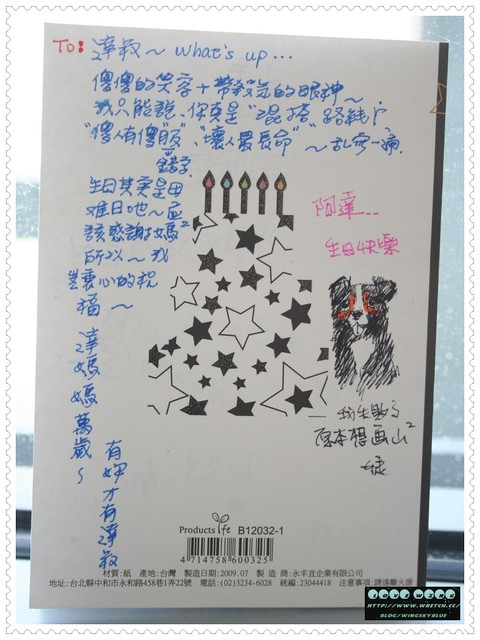 To: 達叔~ What's up...
傻傻的笑容+帶殺氣的眼神~
我只能說、你真是"混搭"路線!
"傻人有傻服"、"壞人最長命"~亂寫一通
錯字
生日其實是母
難日地~應
該感謝媽媽
所以~我
衷心的祝
福~
達媽媽萬歲~
有妳才有達叔
阿達...
生日快樂
我失敗了
原本想畫
Products life B12032-1
4 714758 600325
材質:紙 產地:台灣 製造日期:2009.07 製造商:永丰宜企業有限公司
地址:台北縣中和市永和路458巷1弄22號 電話:(02)3234-6028 統編:23044418 注意事項:請遠離火源
HTTP://WWW.WRETCH.CC/
BLOG/WINGSKYBLUE